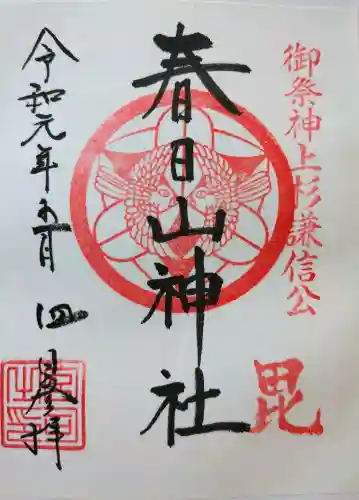 御祭神上杉謙信公
毘
春日山神社
令和元年五月四日登拝